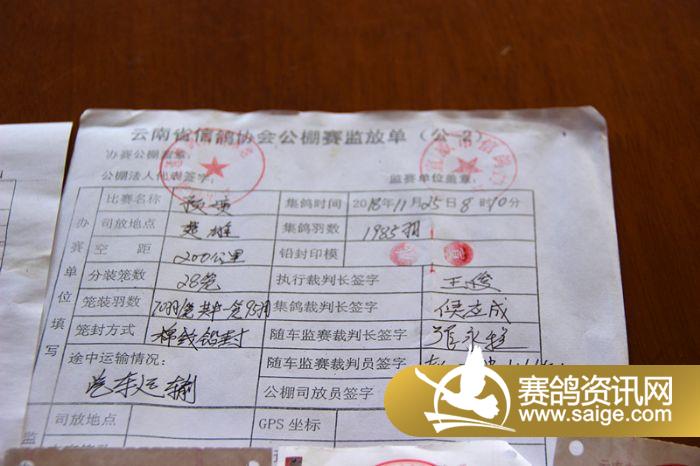 云南省信鸽协会公棚赛监放单（公-2）
办赛公棚盖章：
公棚法人代表签字： 监赛单位盖章：
办赛单位填写
比赛名称 预赛 集鸽时间 2018年11月25日8时10分
司放地点 楚雄 集鸽羽数 1985羽
空距 200公里 铅封印模
分装笼数 28笼 执行裁判长签字
笼装羽数 集鸽裁判长签字 侯应成
笼封方式 铅封 随车监赛裁判长签字 张永
途中运输情况： 随车监赛裁判员签字
汽车运输 公棚司放员签字
司放地点 GPS坐标
监
赛鸽资讯网
www.saige.com